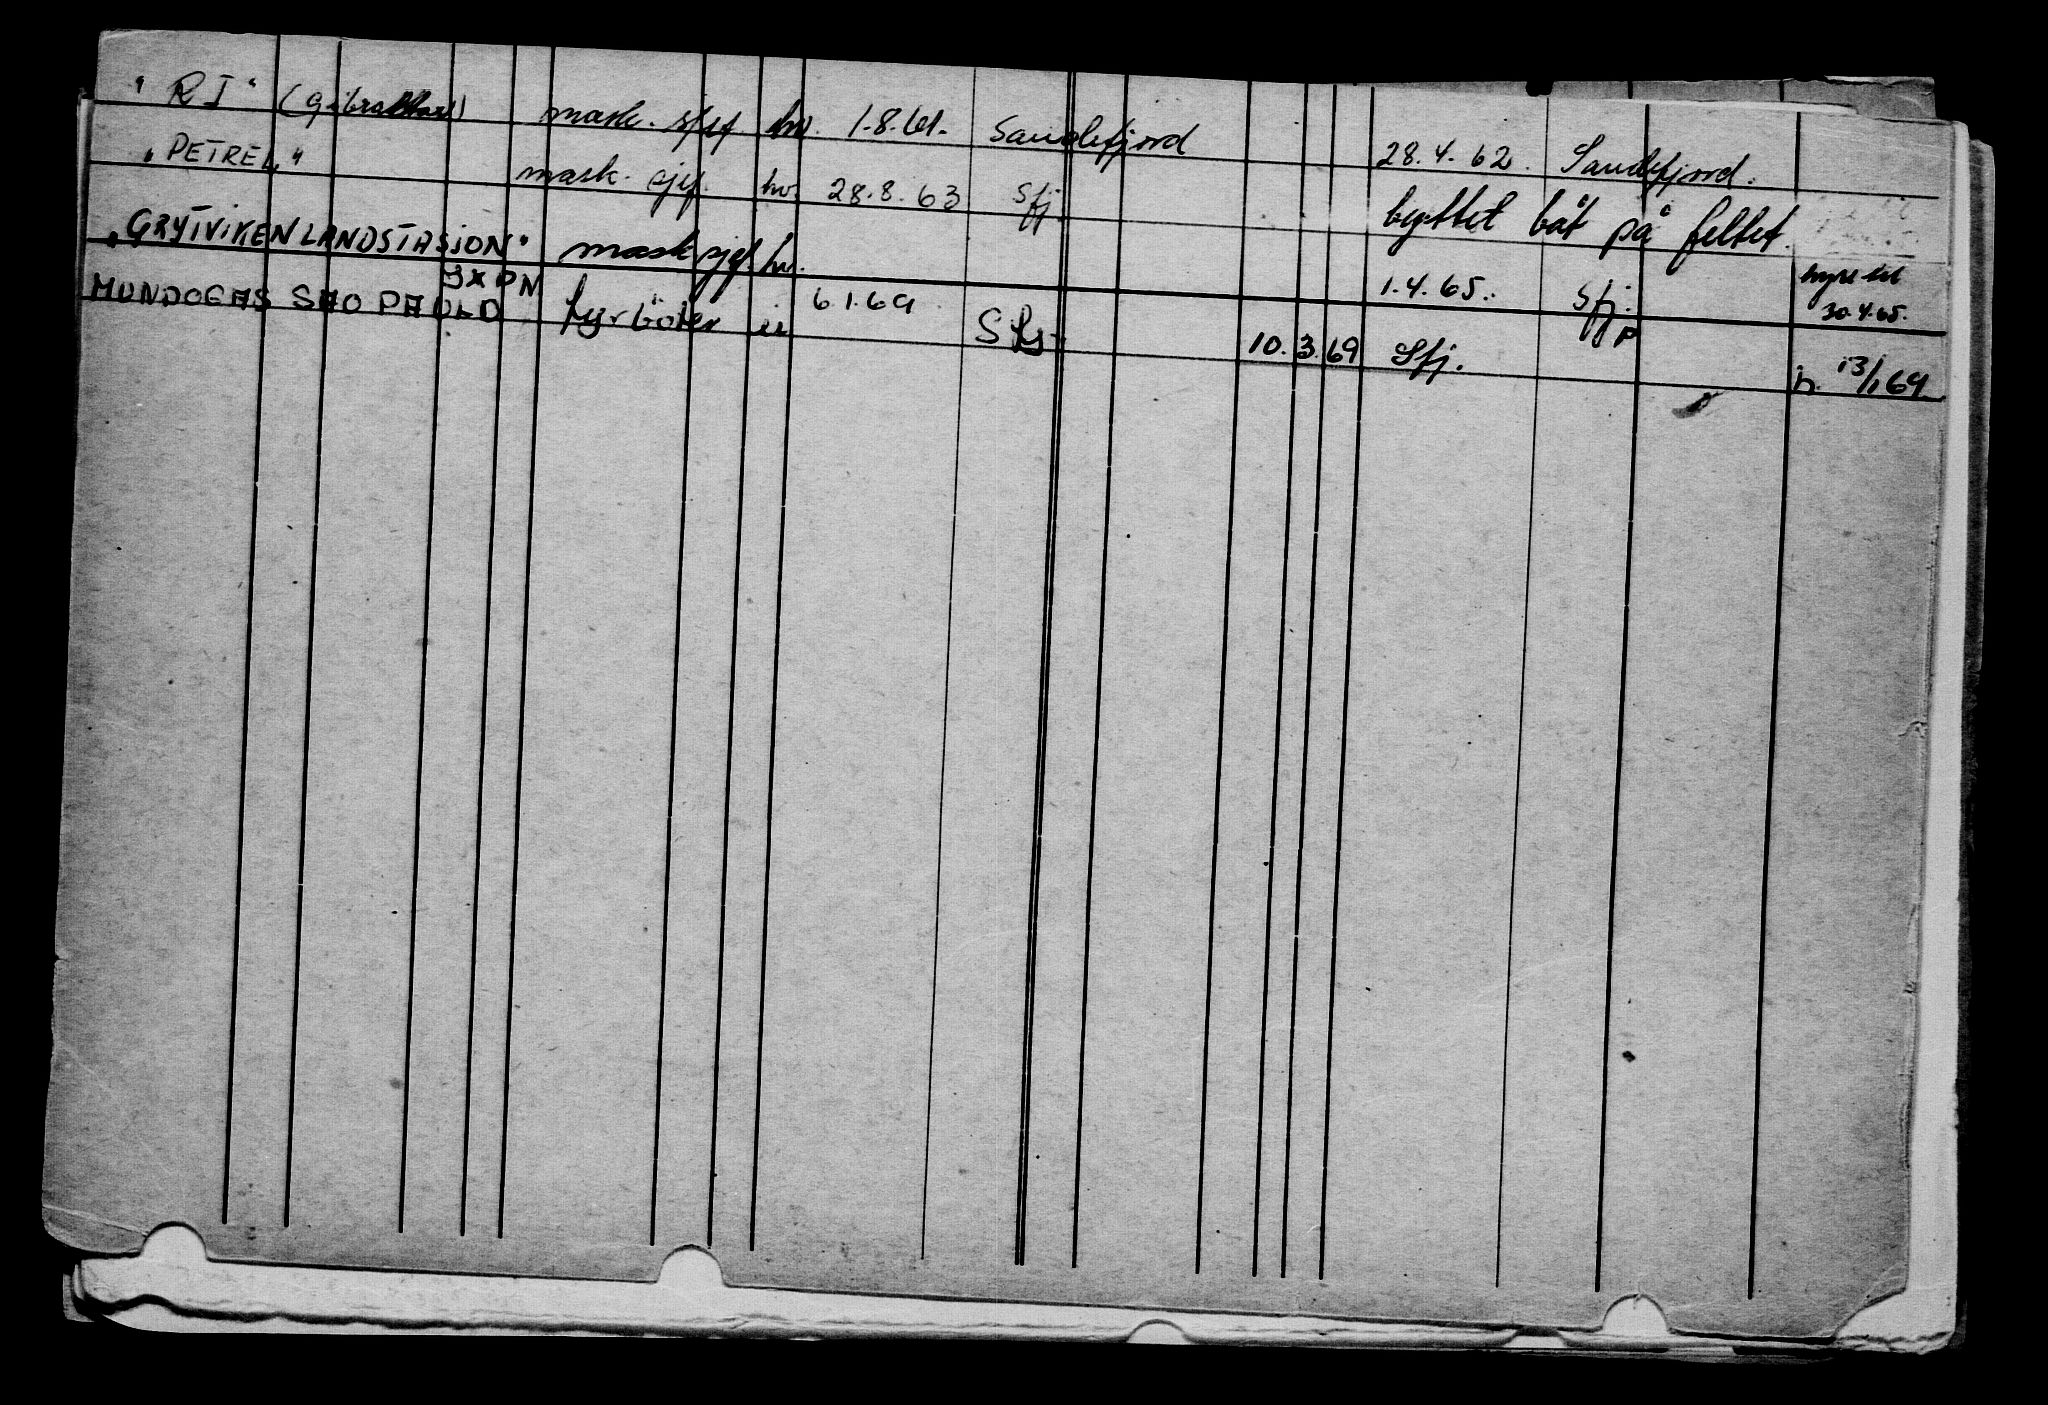 "RI" (Gibraltar) mask. sjef hv. 1.8.61. Sandefjord 28.4.62. Sandefjord.
"PETREL" mask. sjef. hv. 28.8.63 Sfj. byttet båt på feltet.
"GRYTVIKEN LANDSTASJON" mask sjef hv. 1.4.65. Sfj. hyre til 30.4.65.
MUNDOGAS SAO PAULO JXPN fyrböter u 6.1.69 Sfj. 10.3.69 Sfj. P h. 13/1 69